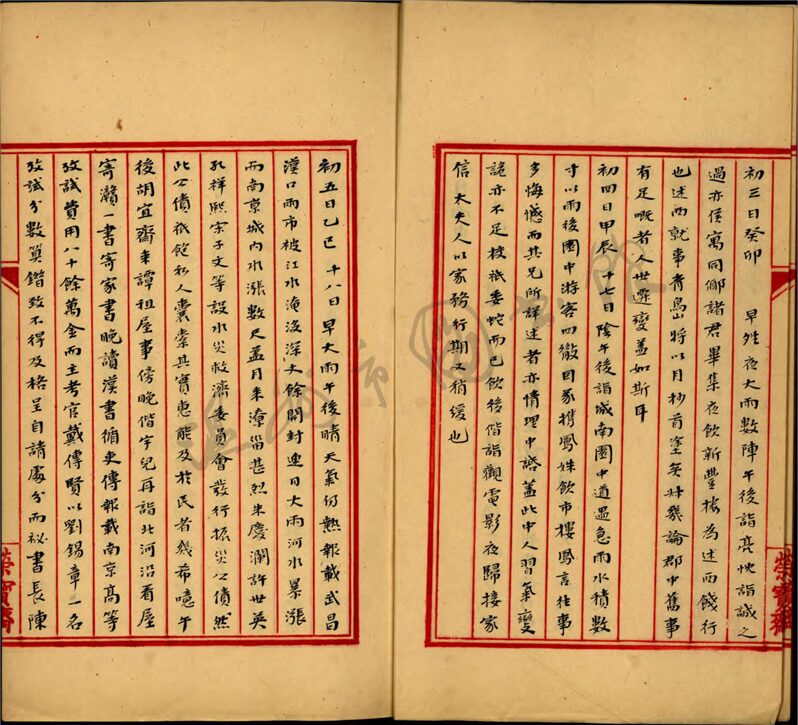 初三日癸卯 早陰夜大雨數陣午後詣亮忱詣誠之
過亦僕寓同鄉諸君畢集夜飲新豐樓為述西餞行
也述西就事青島將以月杪首塗矣艸幾論郡中舊事
有足嘅者人世遷變蓋如斯耳
初四日甲辰十七日陰午後詣城南園中道遇急雨水積數
寸以雨後園中游客四徹回家攜鳳姝飲市樓鳳言往事
多悔憾而其兄所詳述者亦情理中語蓋此中人習氣變
詭亦不足校祇委蛇而已飲後偕詣觀電影夜歸接家
信太夫人以家務行期又稍緩也
初五日乙巳 十八日早大雨午後晴天氣仍熱報載武昌
漢口兩市被江水淹沒深丈餘開封連日大雨河水暴漲
而南京城內水漲數尺蓋月來潦甾甚烈朱慶瀾許世英
孔祥熙宗子文等設水災救濟委員會發行振災公債然
此公債祇飽私人囊橐其實惠能及於民者幾希噫午
後胡宜齋來譚祖屋事傍晚偕宇兒再詣北河沿看屋
寄瀨一書寄家書晚讀漢書循吏傳報載南京高等
攷試費用八十餘萬金而主考官戴傳賢以劉錫章一名
攷試分數算錯致不得及格呈自請處分而祕書長陳
榮寶齋
榮寶齋